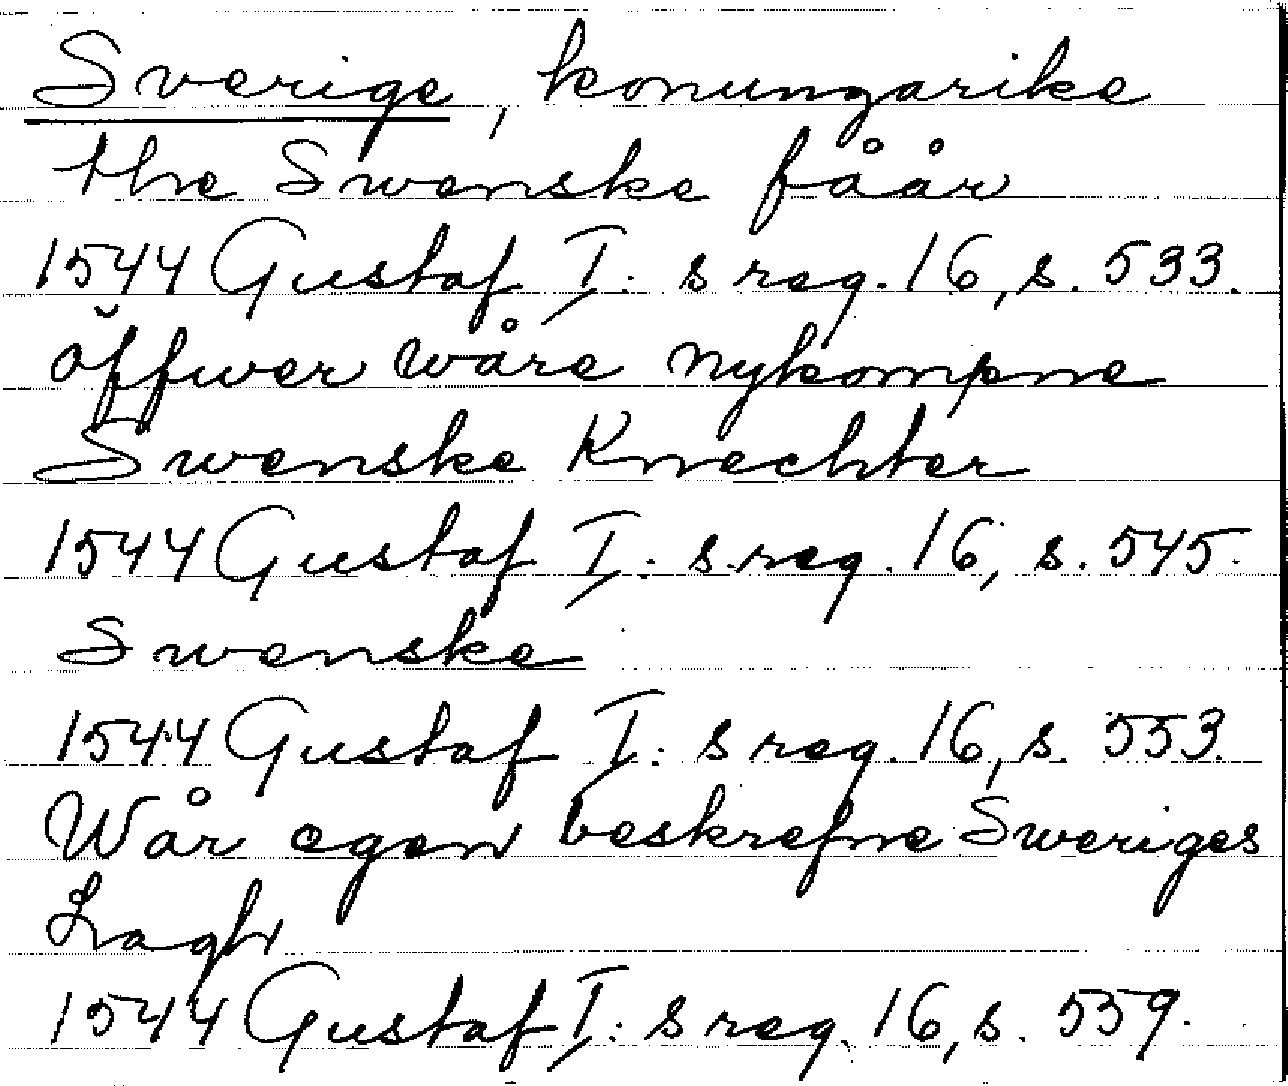 Sverige, konungarike
the Swenske fåår
1544 Gustaf I:s reg. 16, s. 533.
öffwer wåre nykompne
Swenske Knechter
1544 Gustaf I:s reg. 16, s. 545.
Swenske
1544 Gustaf I:s reg. 16, s. 553.
Wår egen beskrefne Sweriges
Lagh
1544 Gustaf I:s reg. 16, s. 559.